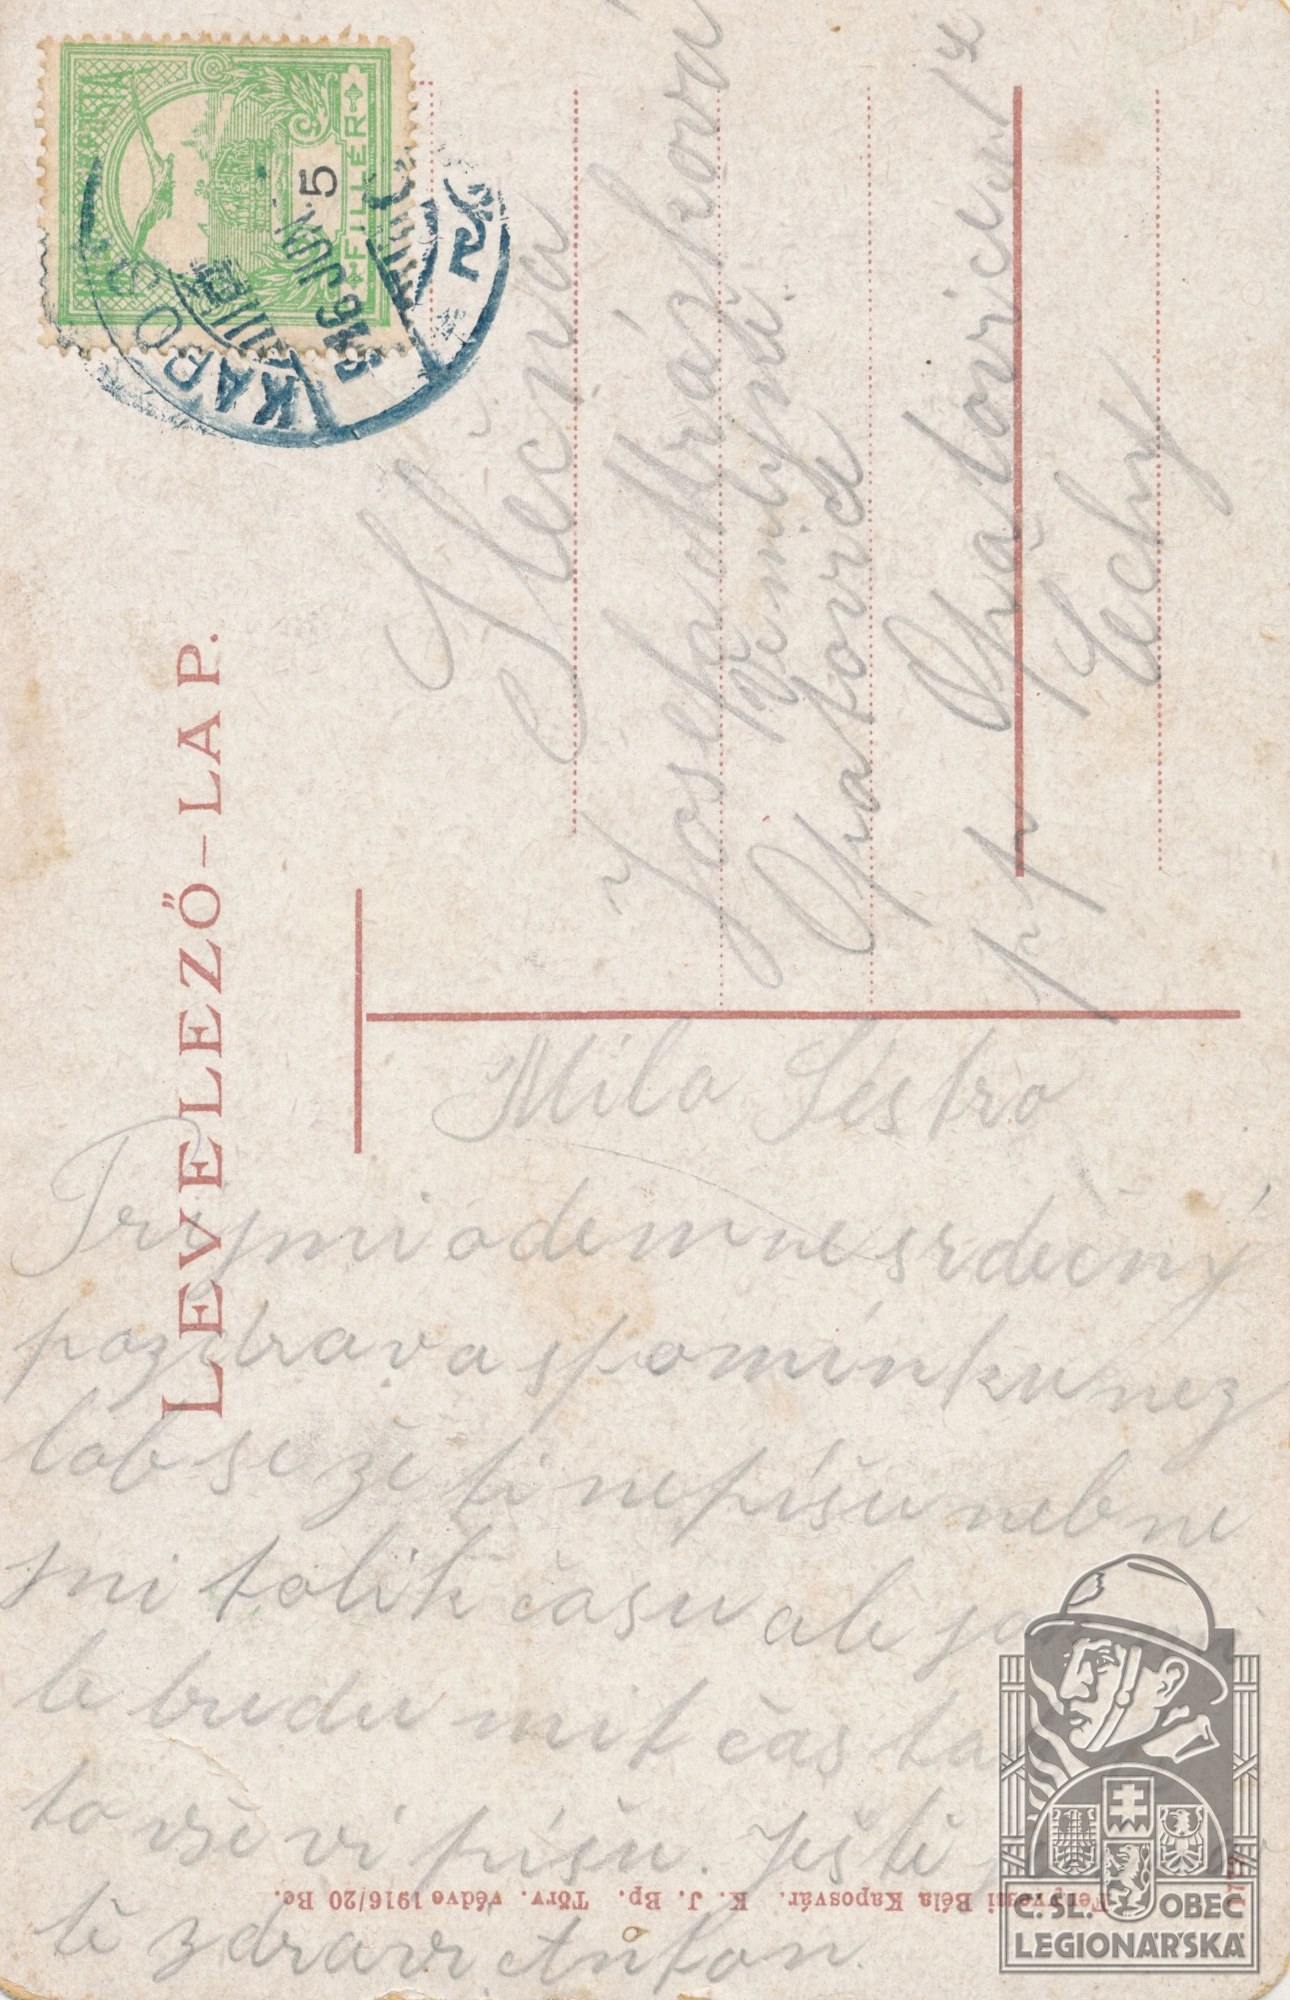 MAGYAR KIR. POSTA
5
FILLÉR
KAPOSVÁR
916 JUN
LEVELEZŐ-LAP.
Slečna
Josefa Mrázkova
Opatovice
Opatovice
pp Čechy
Mila Sestro
Tryjmi odemne srdečny
pozdrav a spominku nez
lob se že ti nepišu neb ne
mi tolik času ale
le budu mit čas ta
to vše vi pišu. Ještě
tě zdravi Anton
Fenyvesi Béla Kaposvár. K. J. Bp. Törv. védve 1916/20 Be.
Č. SL. OBEC
LEGIONÁŘSKÁ